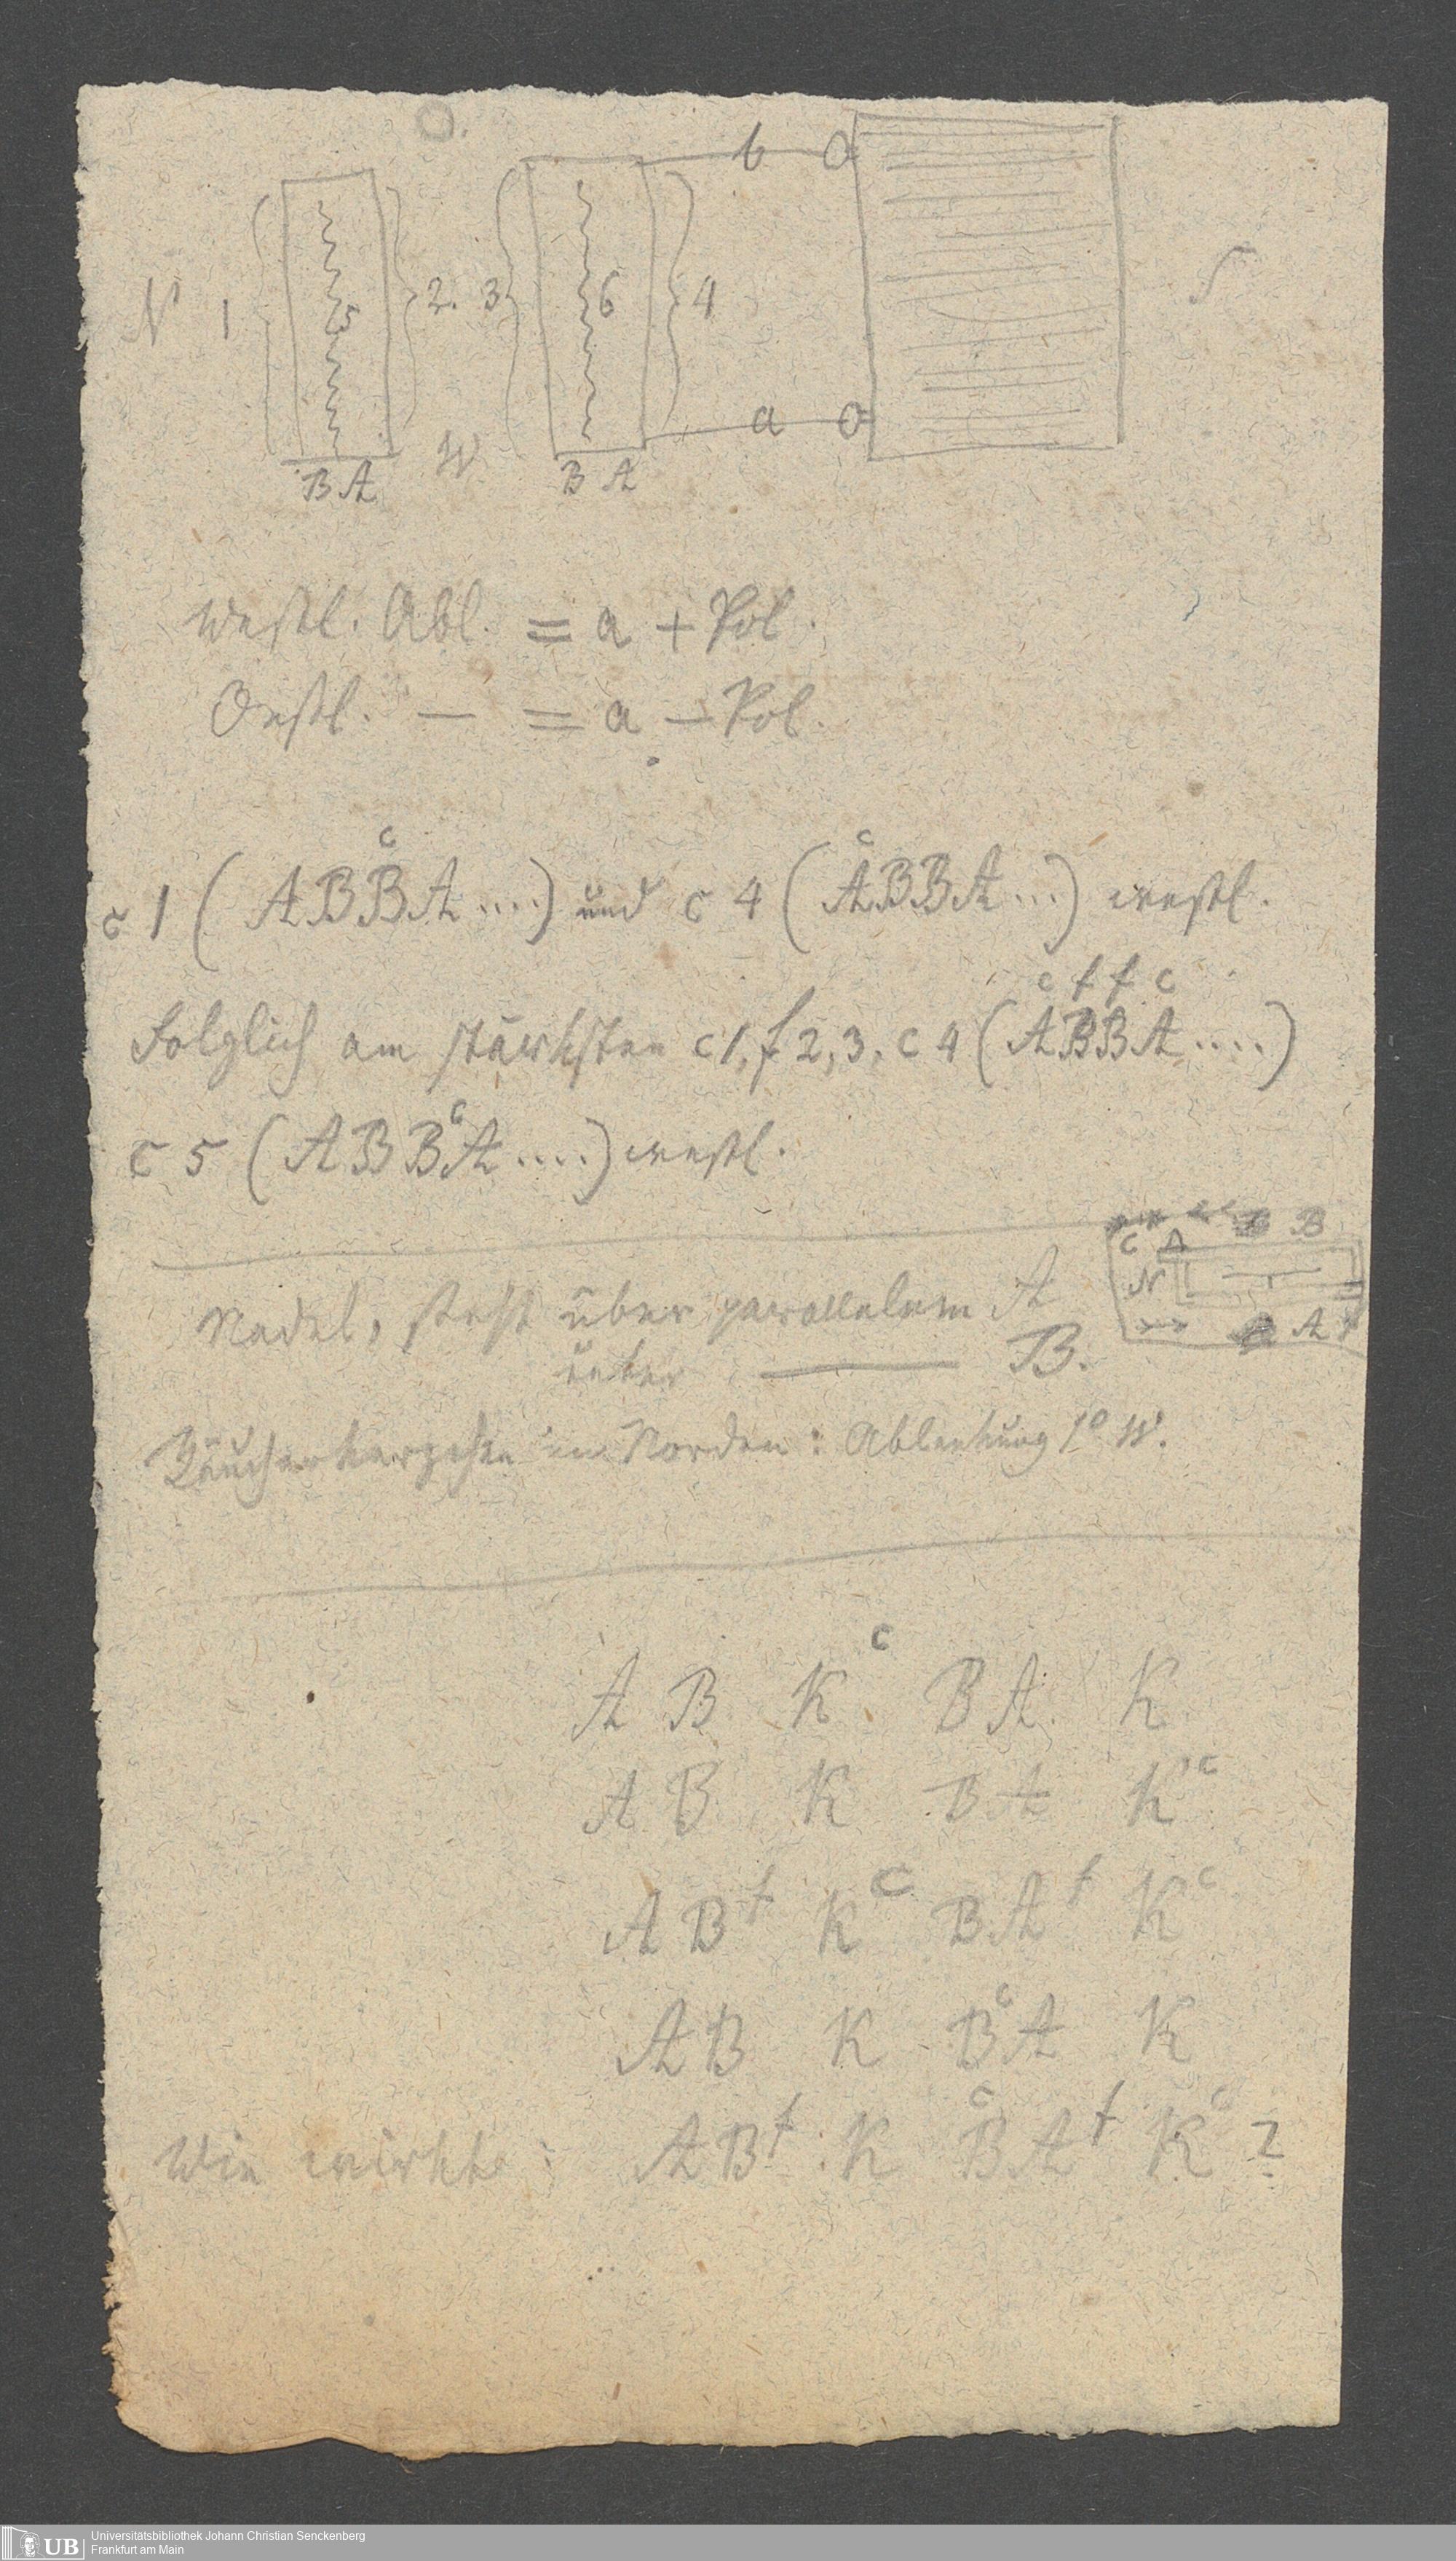 O.
b O
N 1 5 2. 3 6 4 S
a O
B A W B A
westl. Abl. = a + Pol.
Oestl. — = a — Pol.
c
c
c 1 ( A B B A ....) und c 4 ( A B B A ...) westl.
c f f c
Folglich am stärksten c 1, f 2, 3, c 4 ( A B B A ....)
c
c 5 ( A B B A ....) westl.
B B
c A
N
A
Nadel, steht über parallelem A
unter — B.
Räucherkerzchen im Norden: Ablenkung 1° W.
A B K c B A K
A B K B A K c
A B f K c B A f K c
A B K B c A K
Wie wirkt: A B f K B c A f K c ?
UB Universitätsbibliothek Johann Christian Senckenberg
Frankfurt am Main